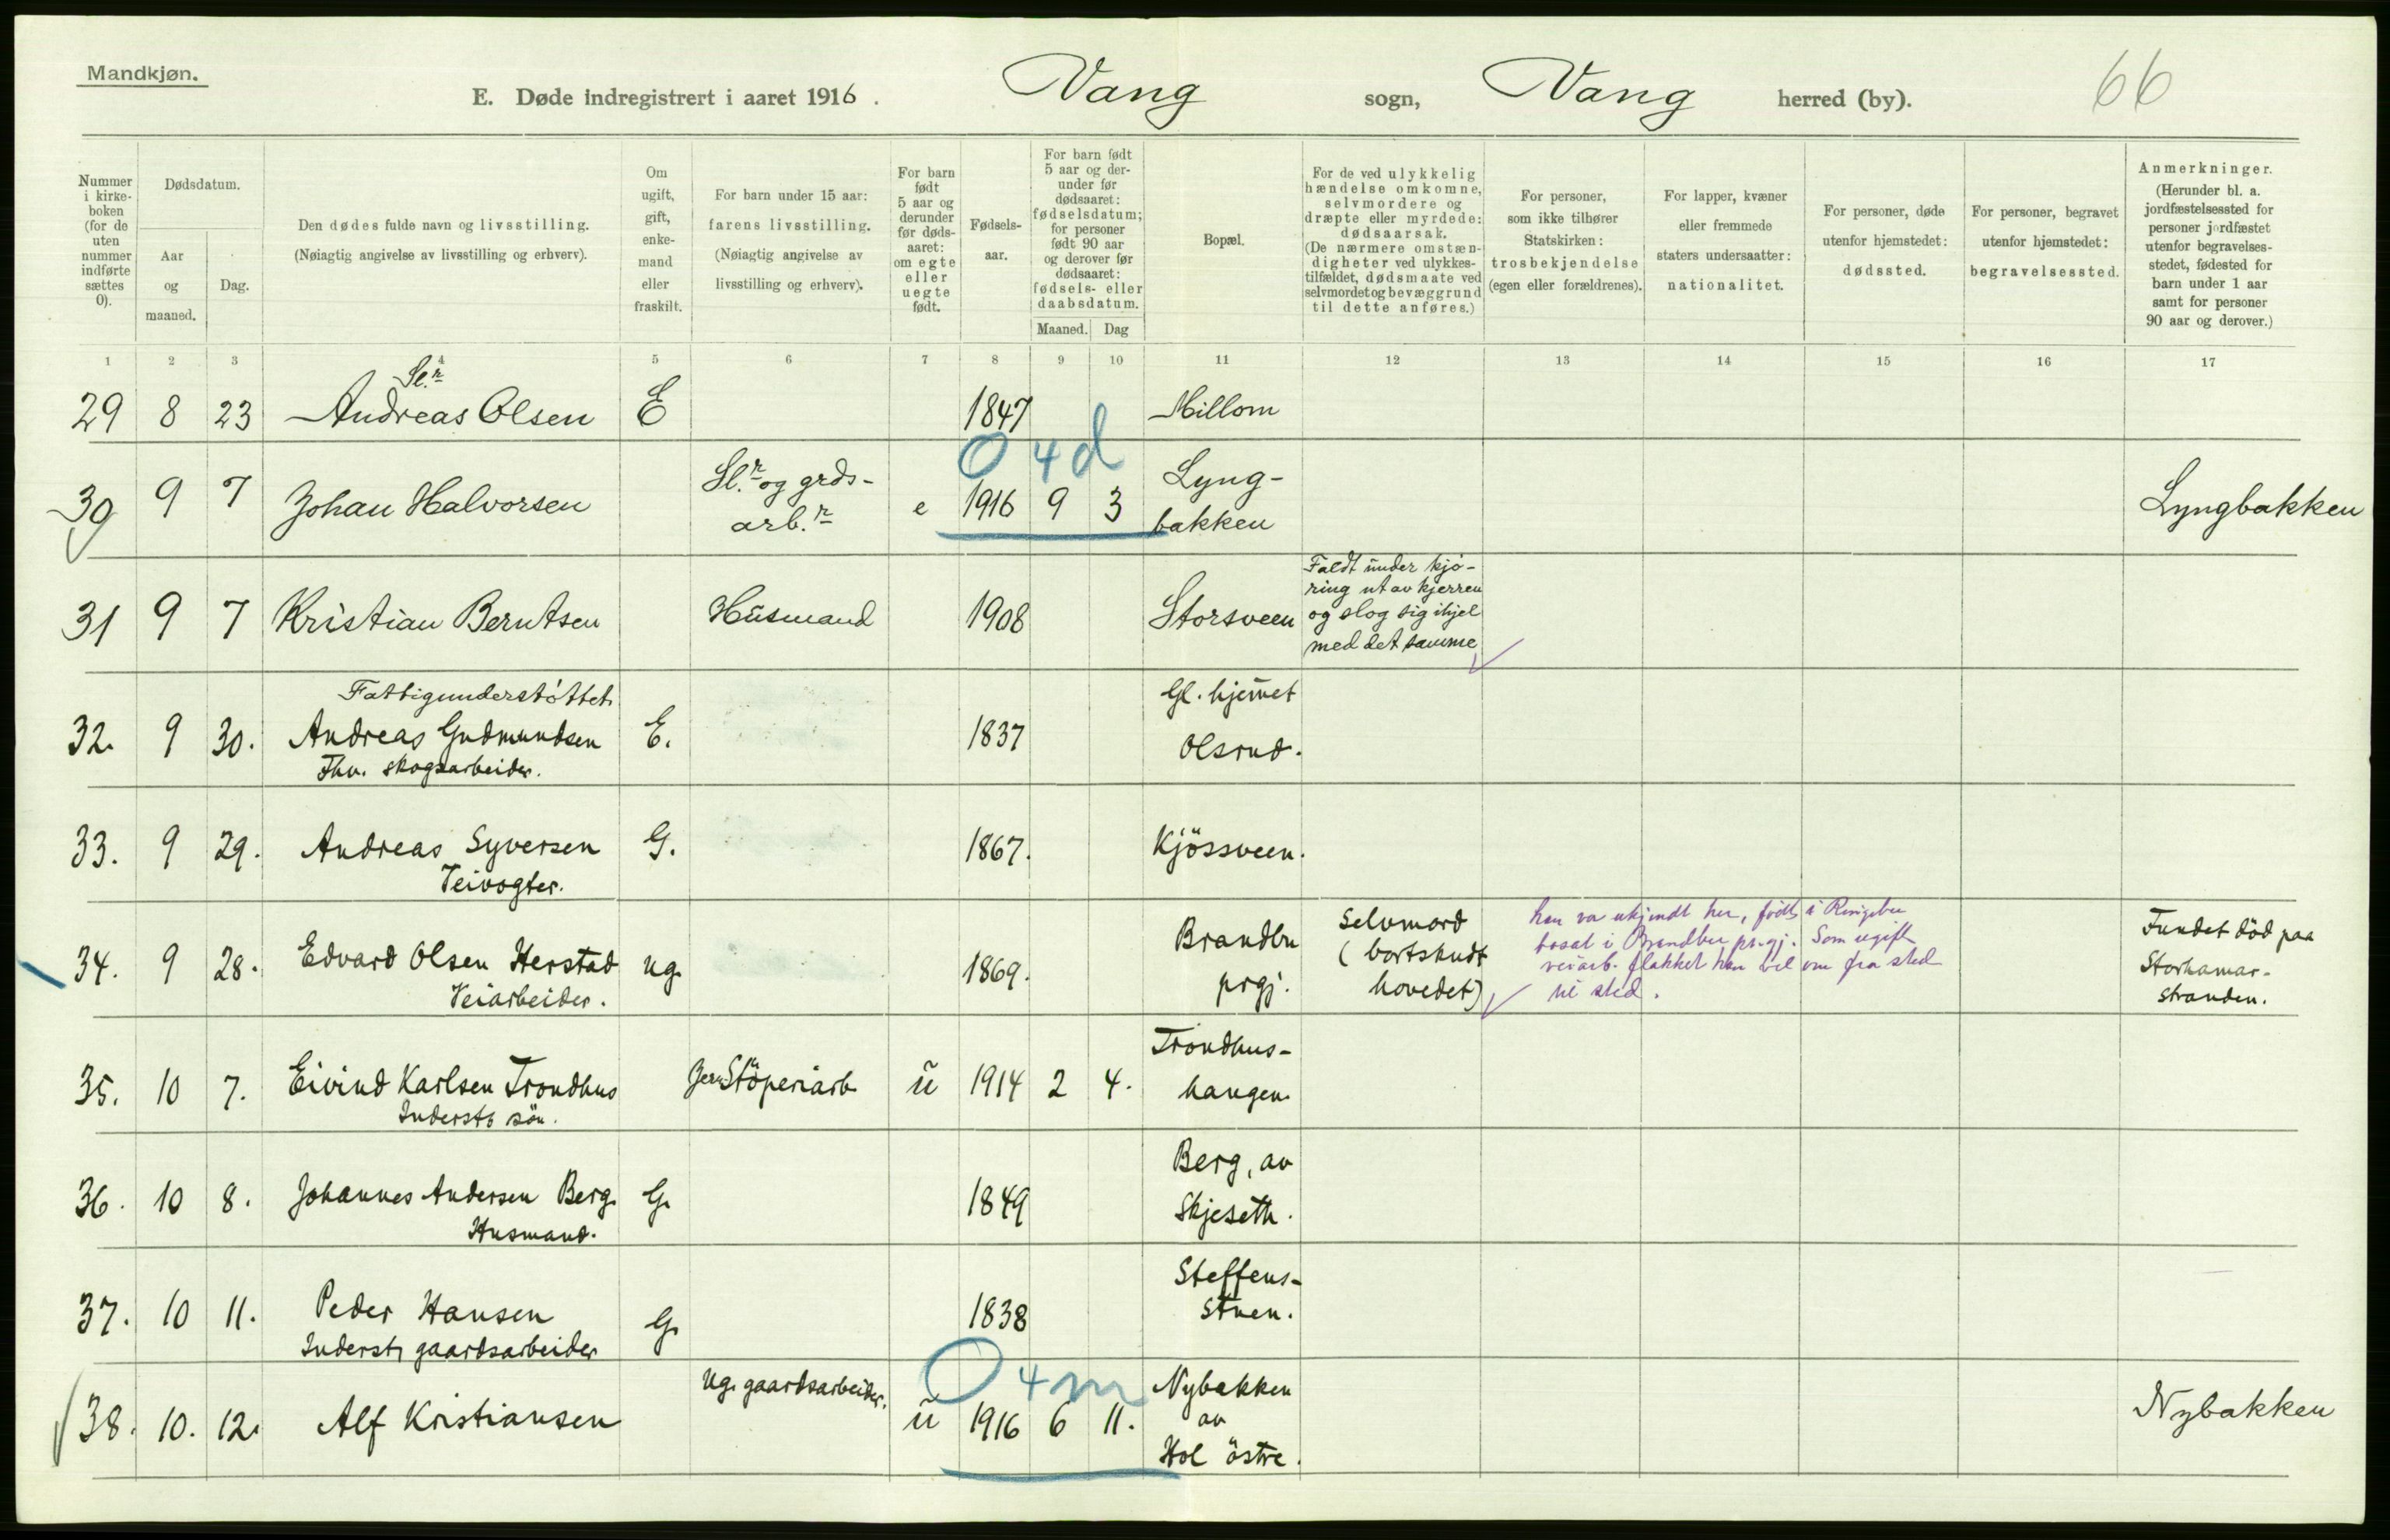 Mandkjøn.
E. Døde indregistrert i aaret 1916. Vang sogn, Vang herred (by). 66
Nummer i kirke-boken (for de uten nummer indførte sættes 0).
Dødsdatum.
Aar og maaned.
Dag.
Den dødes fulde navn og livsstilling.
(Nøiagtig angivelse av livsstilling og erhverv).
Om ugift, gift, enke-mand eller fraskilt.
For barn under 15 aar: farens livsstilling.
(Nøiagtig angivelse av livsstilling og erhverv).
For barn født 5 aar og derunder før døds-aaret: om egte eller uegte født.
Fødsels-aar.
For barn født 5 aar og der-under før dødsaaret: fødselsdatum; for personer født 90 aar og derover før dødsaaret: fødsels- eller daabsdatum.
Maaned. Dag
Bopæl.
For de ved ulykkelig hændelse omkomne, selvmordere og dræpte eller myrdede: dødsaarsak.
(De nærmere omstæn-digheter ved ulykkes-tilfældet, dødsmaate ved selvmordet og bevæggrund til dette anføres.)
For personer, som ikke tilhører Statskirken: trosbekjendelse (egen eller forældrenes).
For lapper, kvæner eller fremmede staters undersaatter: nationalitet.
For personer, døde utenfor hjemstedet: dødssted.
For personer, begravet utenfor hjemstedet: begravelsessted.
Anmerkninger.
(Herunder bl. a. jordfæstelsessted for personer jordfæstet utenfor begravelses-stedet, fødested for barn under 1 aar samt for personer 90 aar og derover.)
1 2 3 4 5 6 7 8 9 10 11 12 13 14 15 16 17
Sl.r
29 8 23 Andreas Olsen E 1847 Millom
0 4 d
30 9 7 Johan Halvorsen Sl.r og grds-arb.r e 1916 9 3 Lyng-bakken Lyngbakken
31 9 7 Kristian Berntsen Husmand 1908 Storsveen Faldt under kjö-ring ut av kjerren og slog sig ihjel med det samme
Fattigunderstöttet
32. 9 30. Andreas Gudmundsen E. 1837 Gl. hjemet Olsrud.
Fhv. skogsarbeider.
33. 9 29. Andreas Syversen G. 1867. Kjössveen.
Veivogter.
34. 9 28. Edvard Olsen Herstad ug. 1869. Brandbu prgj. Selvmord (bortskudt hovedet) han va ukjendt her, födt i Ringebu bosat i Brandbu pr.gj. Som ugift veiarb. flakket han vel om fra sted til sted. Fundet död paa Storhamar-stranden.
Veiarbeider.
35. 10 7. Eivind Karlsen Trondhus Jern Stöperiarb u 1914 2 4. Trondhus-haugen
Inderst sön.
36. 10 8. Johannes Andersen Berg. G. 1849 Berg, av Skjeseth.
Husmand.
37. 10 11. Peder Hansen G. 1838 Steffens-stuen.
Inderst, gaardsarbeider
0 4 m
38. 10. 12. Alf Kristiansen Ug. gaardsarbeider. u 1916 6 11. Nybakken av Hol östre. Nybakken